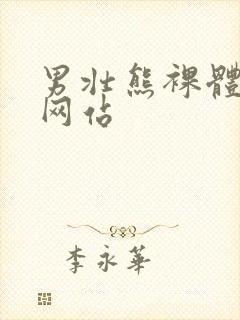 男壮熊裸體
网站
李永華